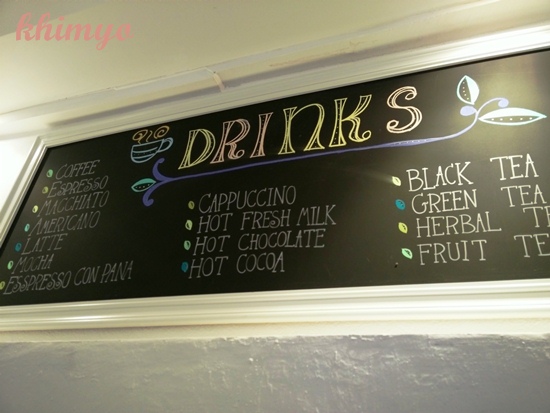 khimyo
DRINKS
COFFEE
ESPRESSO
MACCHIATO
AMERICANO
LATTE
MOCHA
ESPRESSO CON PANA
CAPPUCCINO
HOT FRESH MILK
HOT CHOCOLATE
HOT COCOA
BLACK TEA
GREEN TEA
HERBAL TE
FRUIT TE